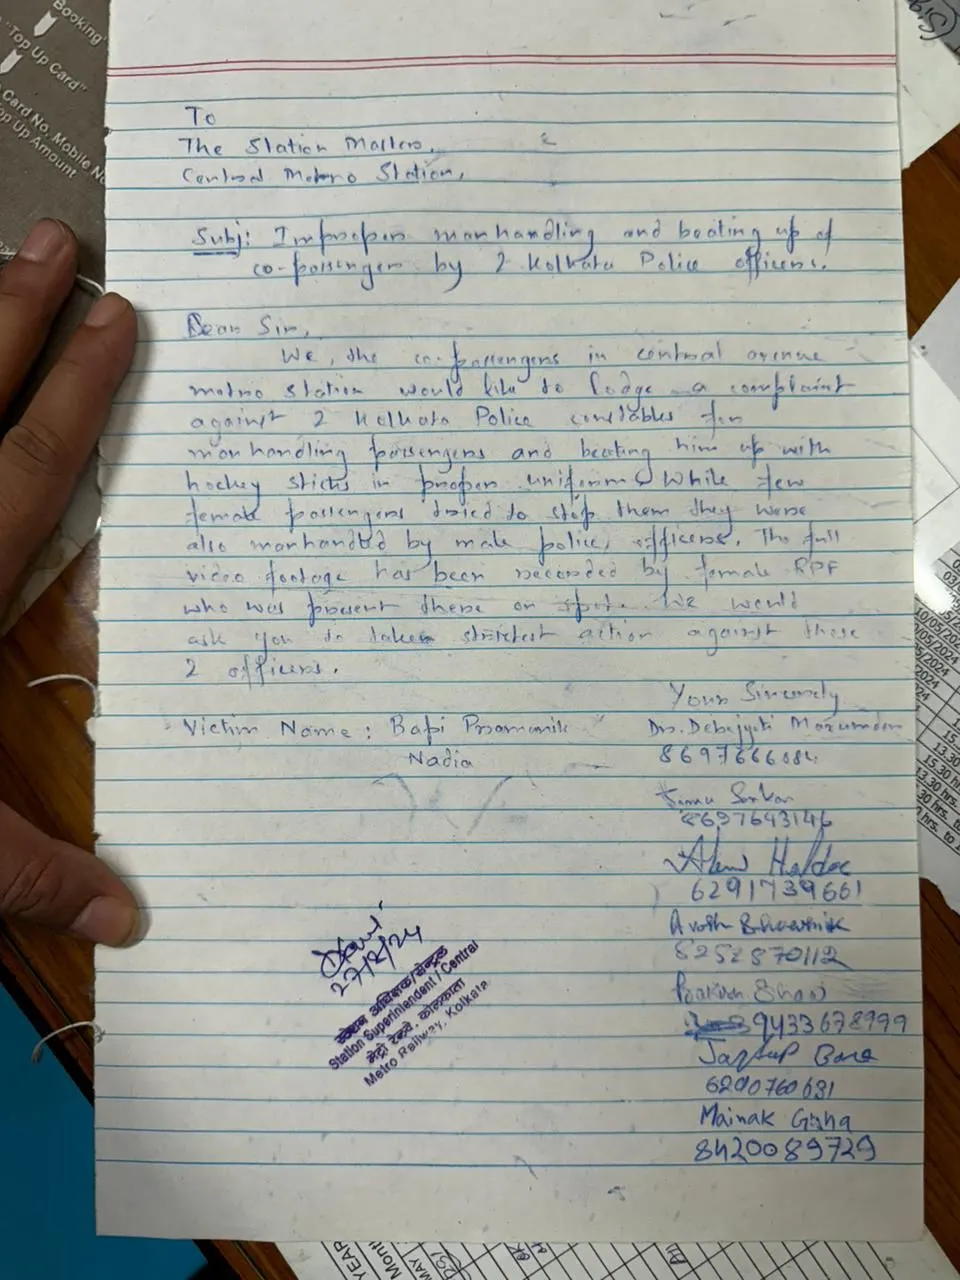 Booking"
"Top Up Card"
Card No. Mobile No
Top Up Amount
To
The Station Master,
Central Metro Station,
Subj: Improper manhandling and beating up of
co-passenger by 2 Kolkata Police officers.
Dear Sir,
We, the co-passengers in central avenue
metro station would like to lodge a complaint
against 2 Kolkata Police constables for
manhandling passengers and beating him up with
hockey sticks in proper uniform. While few
female passengers tried to stop them they were
also manhandled by male police officers. The full
video footage has been recorded by female RPF
who was present there on spot. We would
ask you to taken strictest action against those
2 officers.
Yours Sincerely
Victim Name: Bapi Pramanik
Nadia
Dr. Debajyoti Mazumder
8697666084
Sarkar
8697643146
Halder
6291739661
8252870112
9433678999
6290760631
Mainak Guha
8420089729
27/8/24
स्टेशन अधीक्षक/सेन्ट्रल
Station Superintendent / Central
मेट्रो रेलवे, कोलकाता
Metro Railway, Kolkata